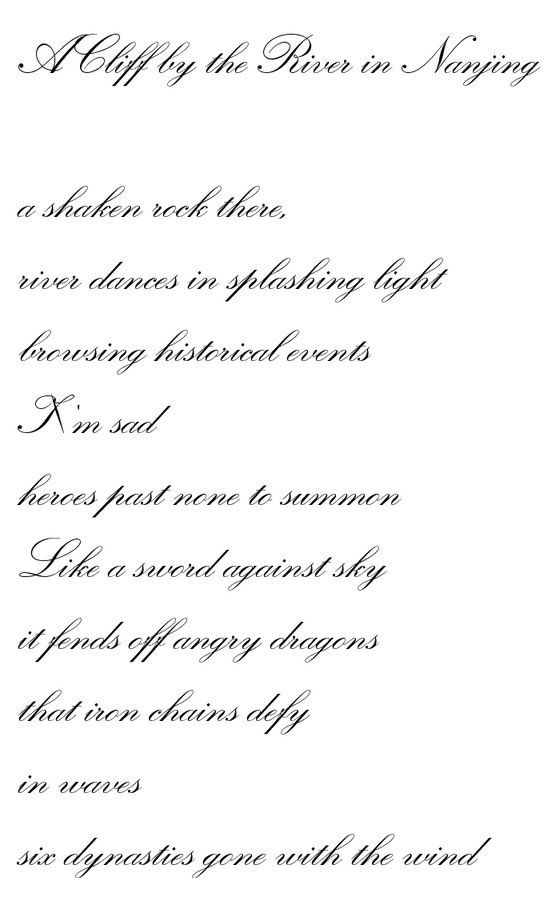 A Cliff by the River in Nanjing
a shaken rock there,
river dances in splashing light
browsing historical events
I'm sad
heroes past none to summon
Like a sword against sky
it fends off angry dragons
that iron chains defy
in waves
six dynasties gone with the wind